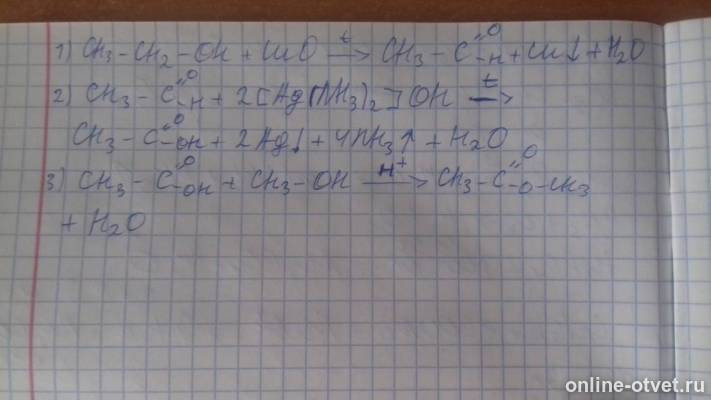 1) CH₃-CH₂-OH + CuO →t CH₃-C(=O)-H + Cu↓ + H₂O
2) CH₃-C(=O)-H + 2[Ag(NH₃)₂]OH →t
CH₃-C(=O)-OH + 2Ag↓ + 4NH₃↑ + H₂O
3) CH₃-C(=O)-OH + CH₃-OH →H⁺ CH₃-C(=O)-O-CH₃
+ H₂O
online-otvet.ru